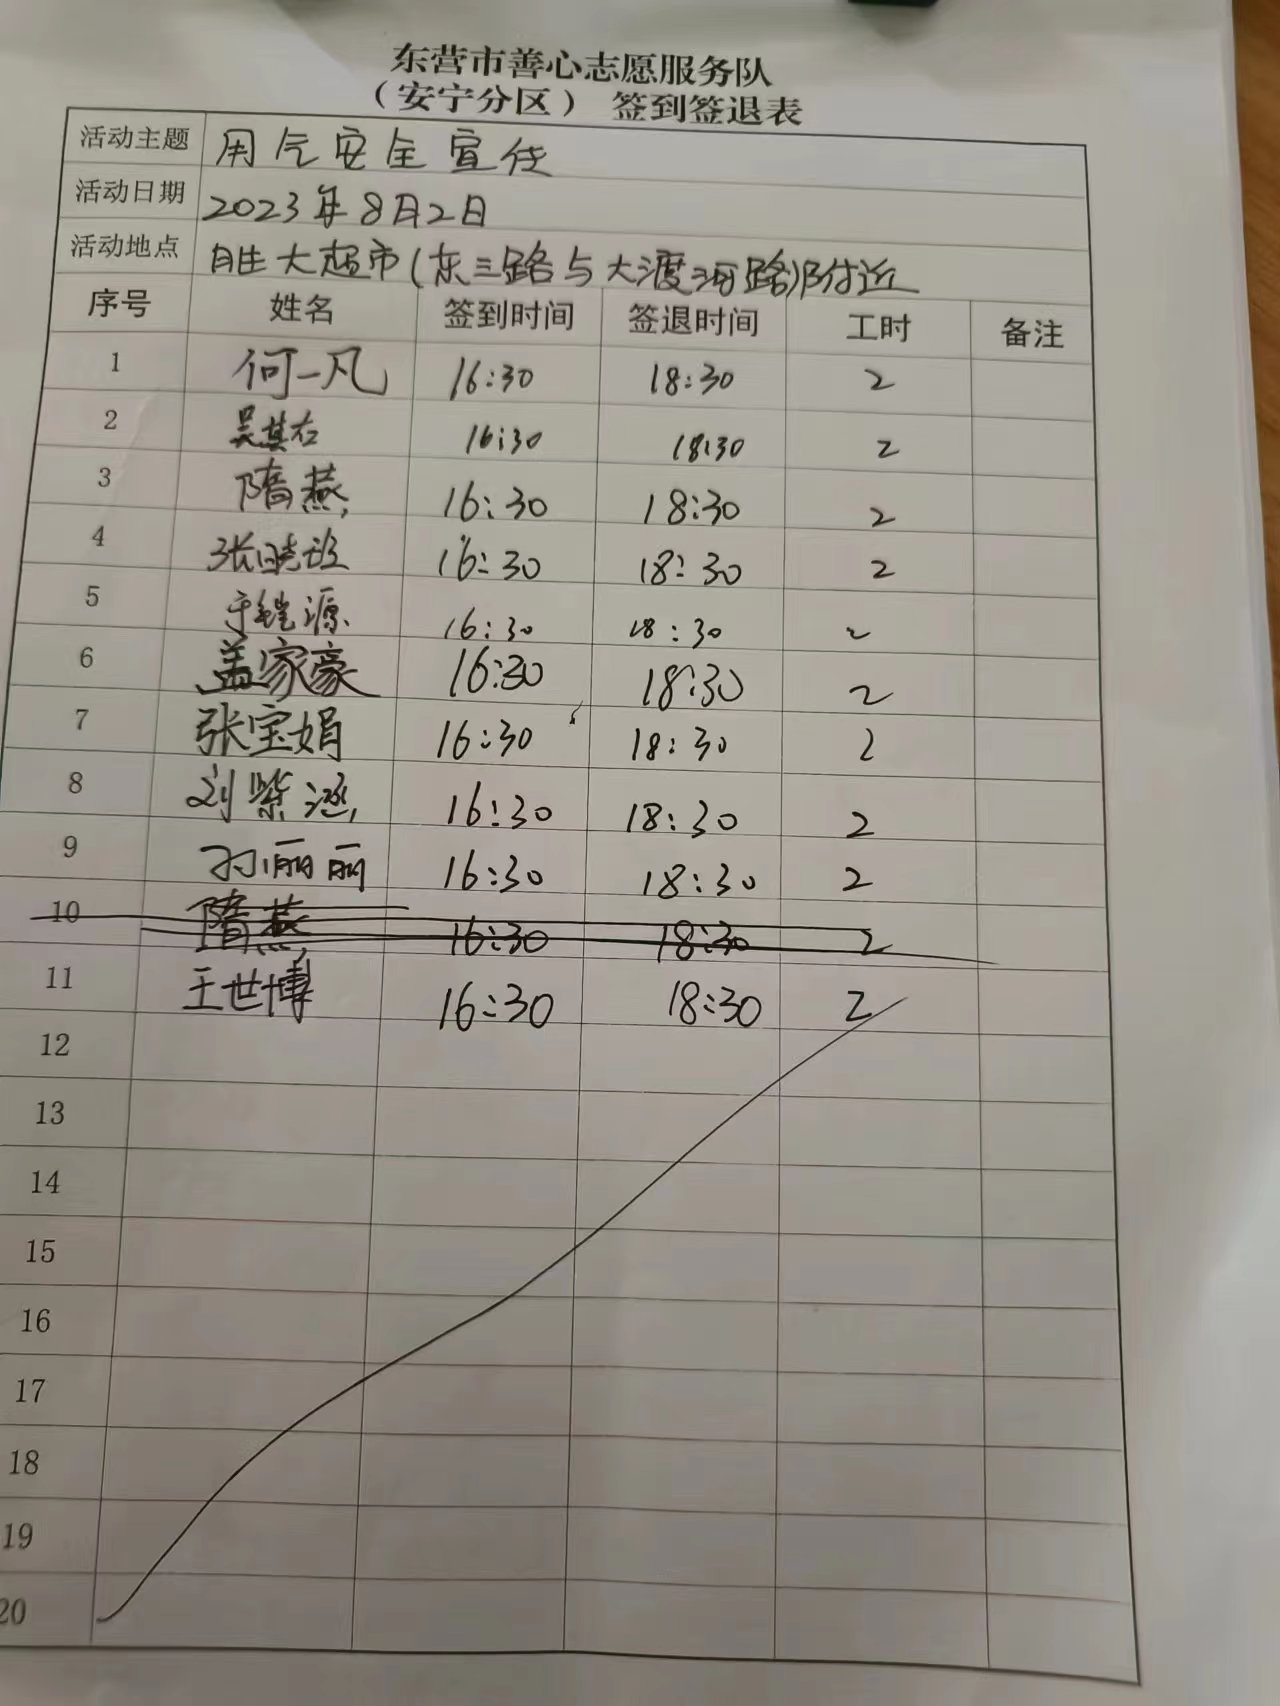 东营市善心志愿服务队
（安宁分区） 签到签退表
活动主题 用气安全宣传
活动日期 2023年8月2日
活动地点 胜大超市(东三路与大渡河路)附近
序号 姓名 签到时间 签退时间 工时 备注
1 何一凡 16:30 18:30 2
2 吴其右 16:30 18:30 2
3 隋燕 16:30 18:30 2
4 张晓 16:30 18:30 2
5 于铠源 16:30 18:30 2
6 盖家豪 16:30 18:30 2
7 张宝娟 16:30 18:30 2
8 刘紫涵 16:30 18:30 2
9 孙丽丽 16:30 18:30 2
10 隋燕 16:30 18:30 2
11 王世博 16:30 18:30 2
12
13
14
15
16
17
18
19
20